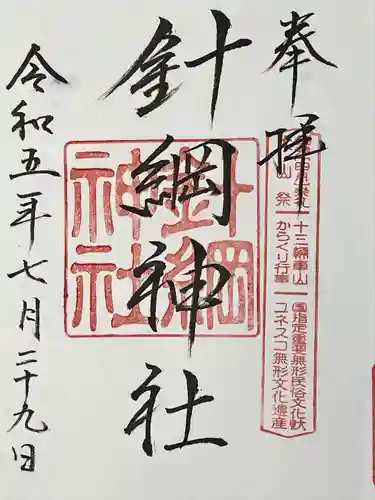 奉拝
十三輌車山
からくり行事
国指定重要無形民俗文化財
ユネスコ無形文化遺産
針綱神社
針綱
神社
令和五年七月二十九日